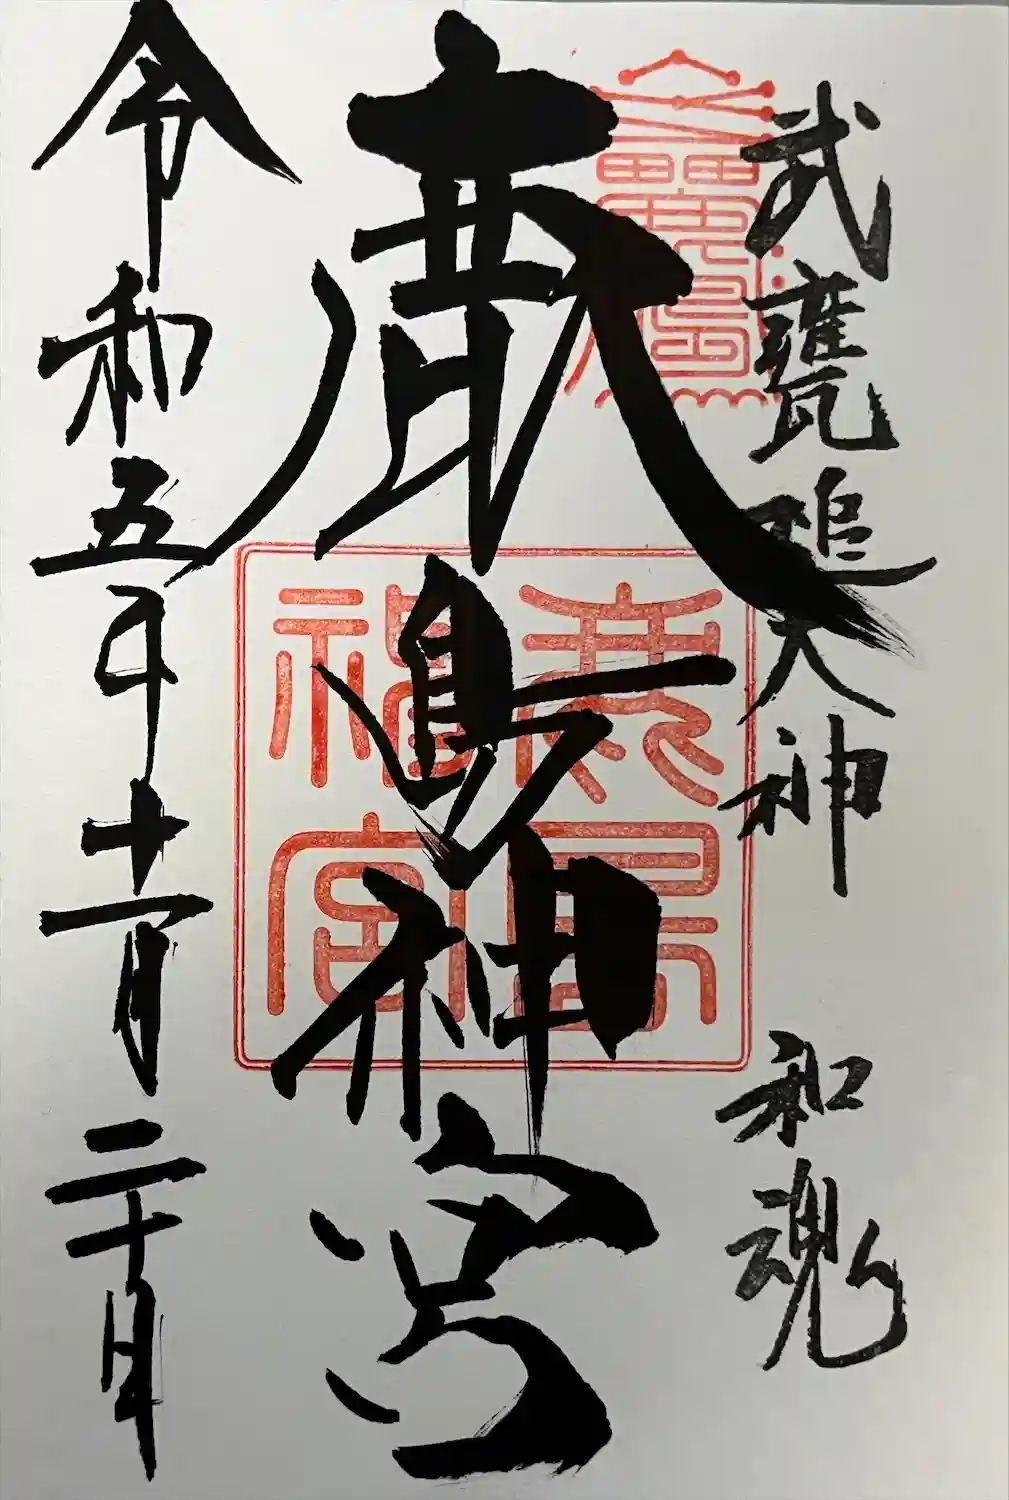 武甕槌大神 和魂
鹿島神宮
令和五年十一月二十日